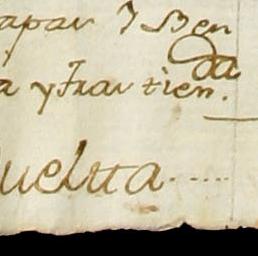 apar I Ben
da
a y fran tien.
uelta .....